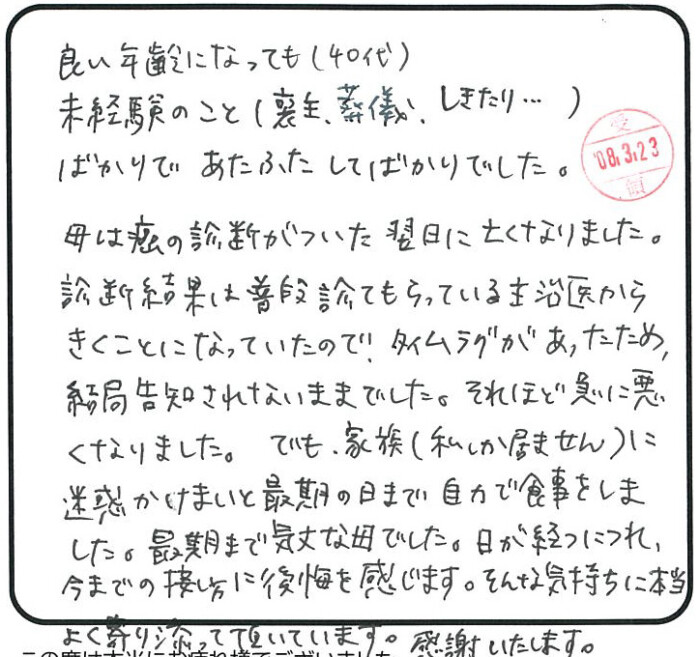 良い年齢になっても(40代)
未経験のこと(喪主、葬儀、しきたり…)
ばかりで あたふたしてばかりでした。
受
'08.3.23
領
母は癌の診断がついた翌日に亡くなりました。
診断結果は普段診てもらっている主治医から
きくことになっていたので、タイムラグがあったため、
結局告知されないままでした。それほど急に悪
くなりました。でも、家族(私しか居ません)に
迷惑かけまいと最期の日まで自力で食事をしま
した。最期まで気丈な母でした。日が経つにつれ、
今までの接し方に後悔を感じます。そんな気持ちに本当
よく寄り添って頂いています。感謝いたします。
この度は本当にお疲れ様でございました